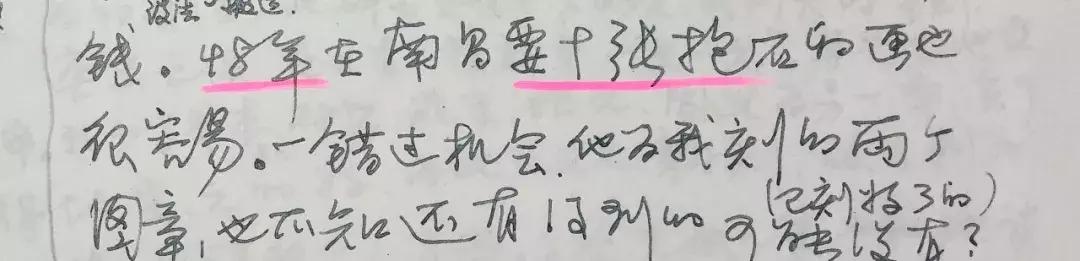 设法 搬运.
钱。48年在南昌要十张抱石的画也
很容易。一错过机会.他为我刻的两个
(已刻好了的)
图章,也不知还有没别的可能没有?